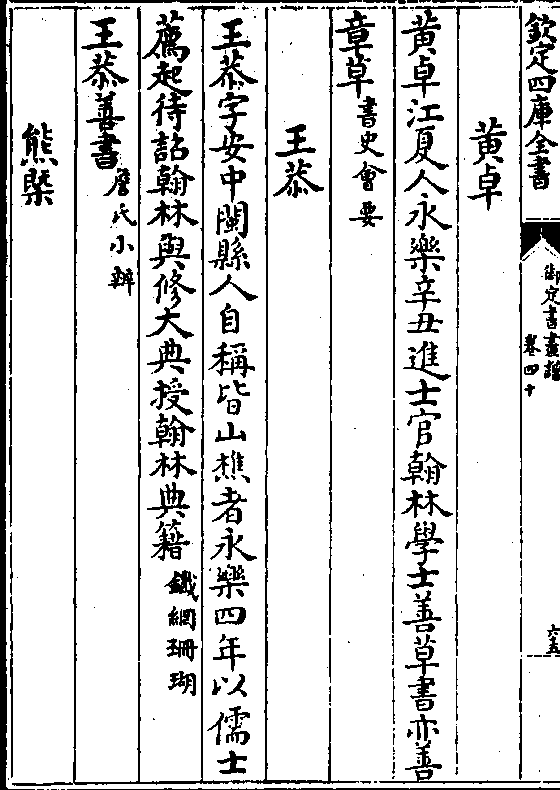 欽定四庫全書
御定書畫譜
卷四十
六五
黃卓
黃卓江夏人永樂辛丑進士官翰林學士善草書亦善
章草書史會要
王恭
王恭字安中閩縣人自稱皆山樵者永樂四年以儒士
薦起待詔翰林與修大典授翰林典籍鐵網珊瑚
王恭善書詹氏小辨
熊㮣